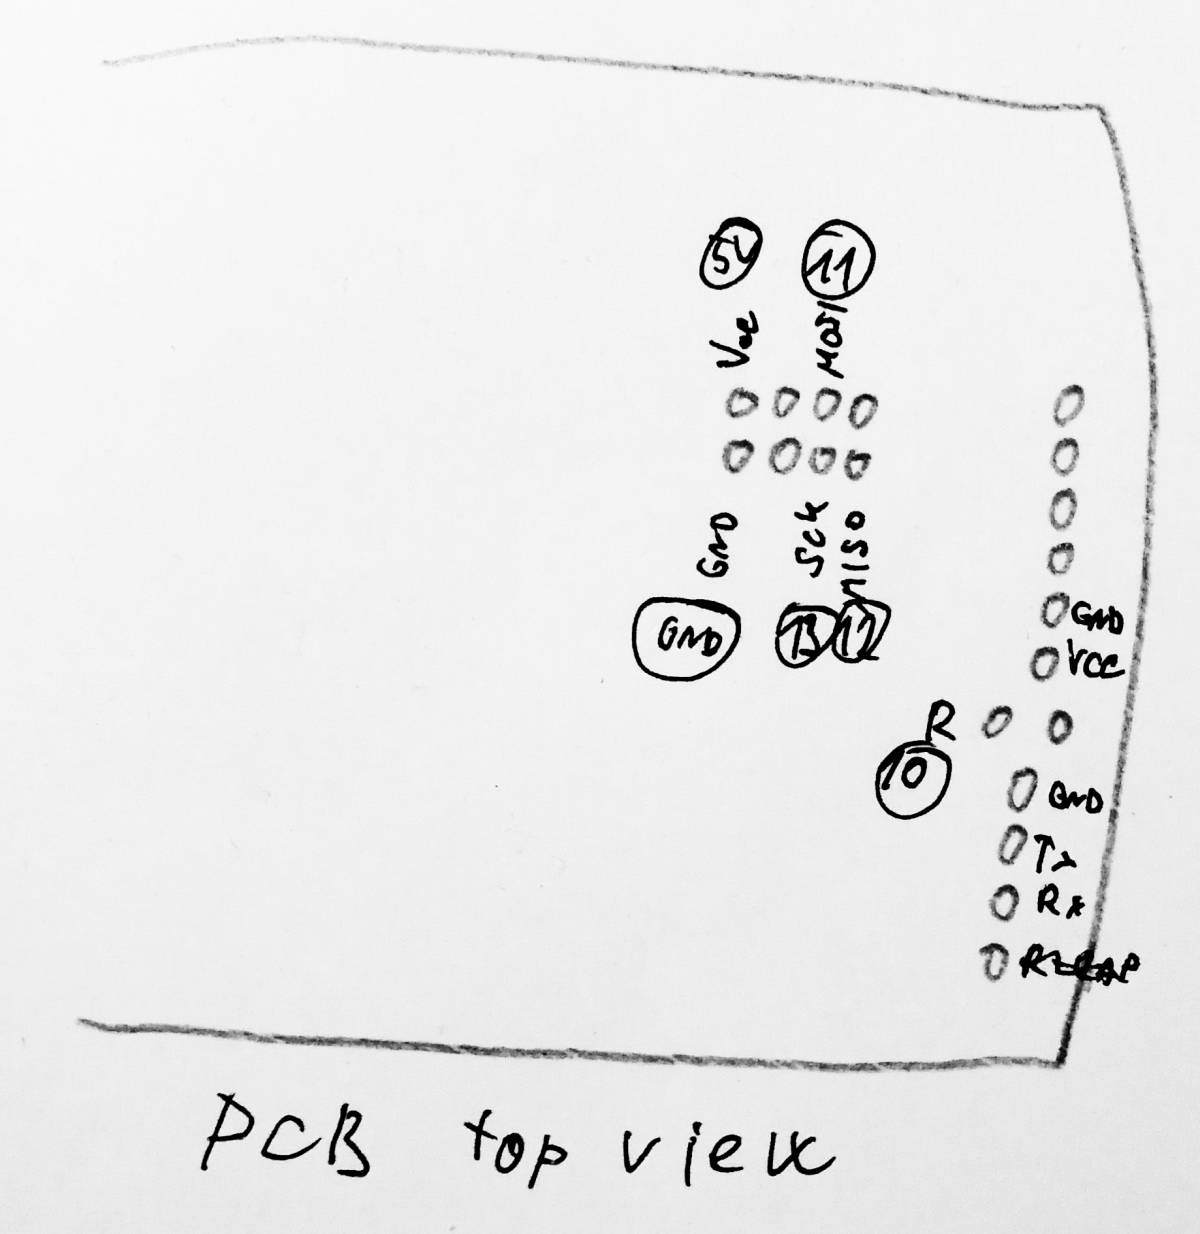 5V 11
Vcc MOSI
GND SCK MISO
GND 13 12
GND
VCC
R
10
GND
Tx
Rx
PCB top view